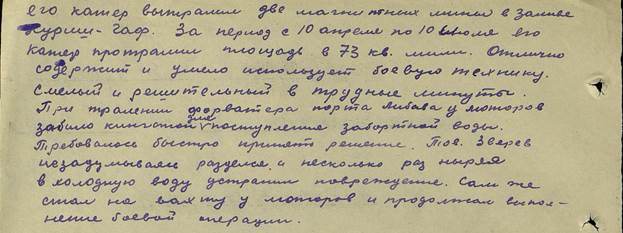 его катер вытралил две магнитных мины в заливе
Куршгаф. За период с 10 апреля по 10 июля его
катер протралил площадь в 73 кв. мили. Отлично
содержит и умело использует боевую технику.
Смелый и решительный в трудные минуты.
При тралении форватера порта Либава у моторов
забило кингстон для поступления забортной воды.
Требовалось быстро принять решение. Тов. Зверев
незадумываясь разделся и несколько раз ныряя
в холодную воду устранил повреждение. Сам же
стал на вахту у моторов и продолжал выпол-
нение боевой операции.